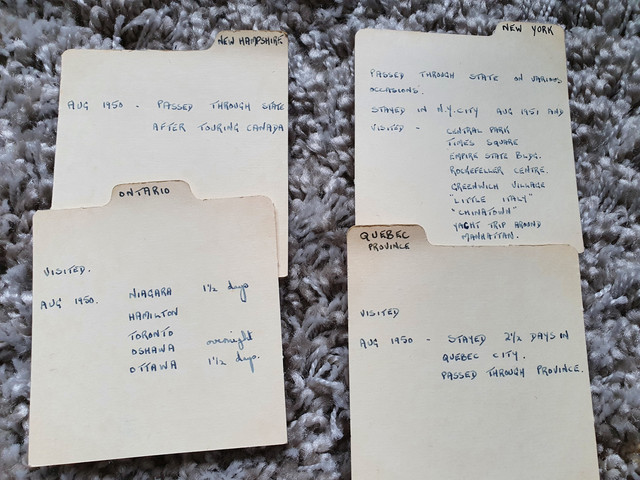 NEW HAMPSHIRE
AUG 1950 - PASSED THROUGH STATE
AFTER TOURING CANADA
NEW YORK
PASSED THROUGH STATE ON VARIOUS
OCCASIONS.
STAYED IN N.Y. CITY AUG 1951 AND
VISITED - CENTRAL PARK
TIMES SQUARE
EMPIRE STATE BLDG.
ROCKEFELLER CENTRE.
GREENWICH VILLAGE
"LITTLE ITALY"
"CHINATOWN"
YACHT TRIP AROUND
MANHATTAN.
ONTARIO
VISITED.
AUG 1950. NIAGARA 1½ days
HAMILTON
TORONTO
OSHAWA overnight
OTTAWA 1½ days.
QUEBEC
PROVINCE
VISITED
AUG 1950 - STAYED 2½ DAYS IN
QUEBEC CITY.
PASSED THROUGH PROVINCE.